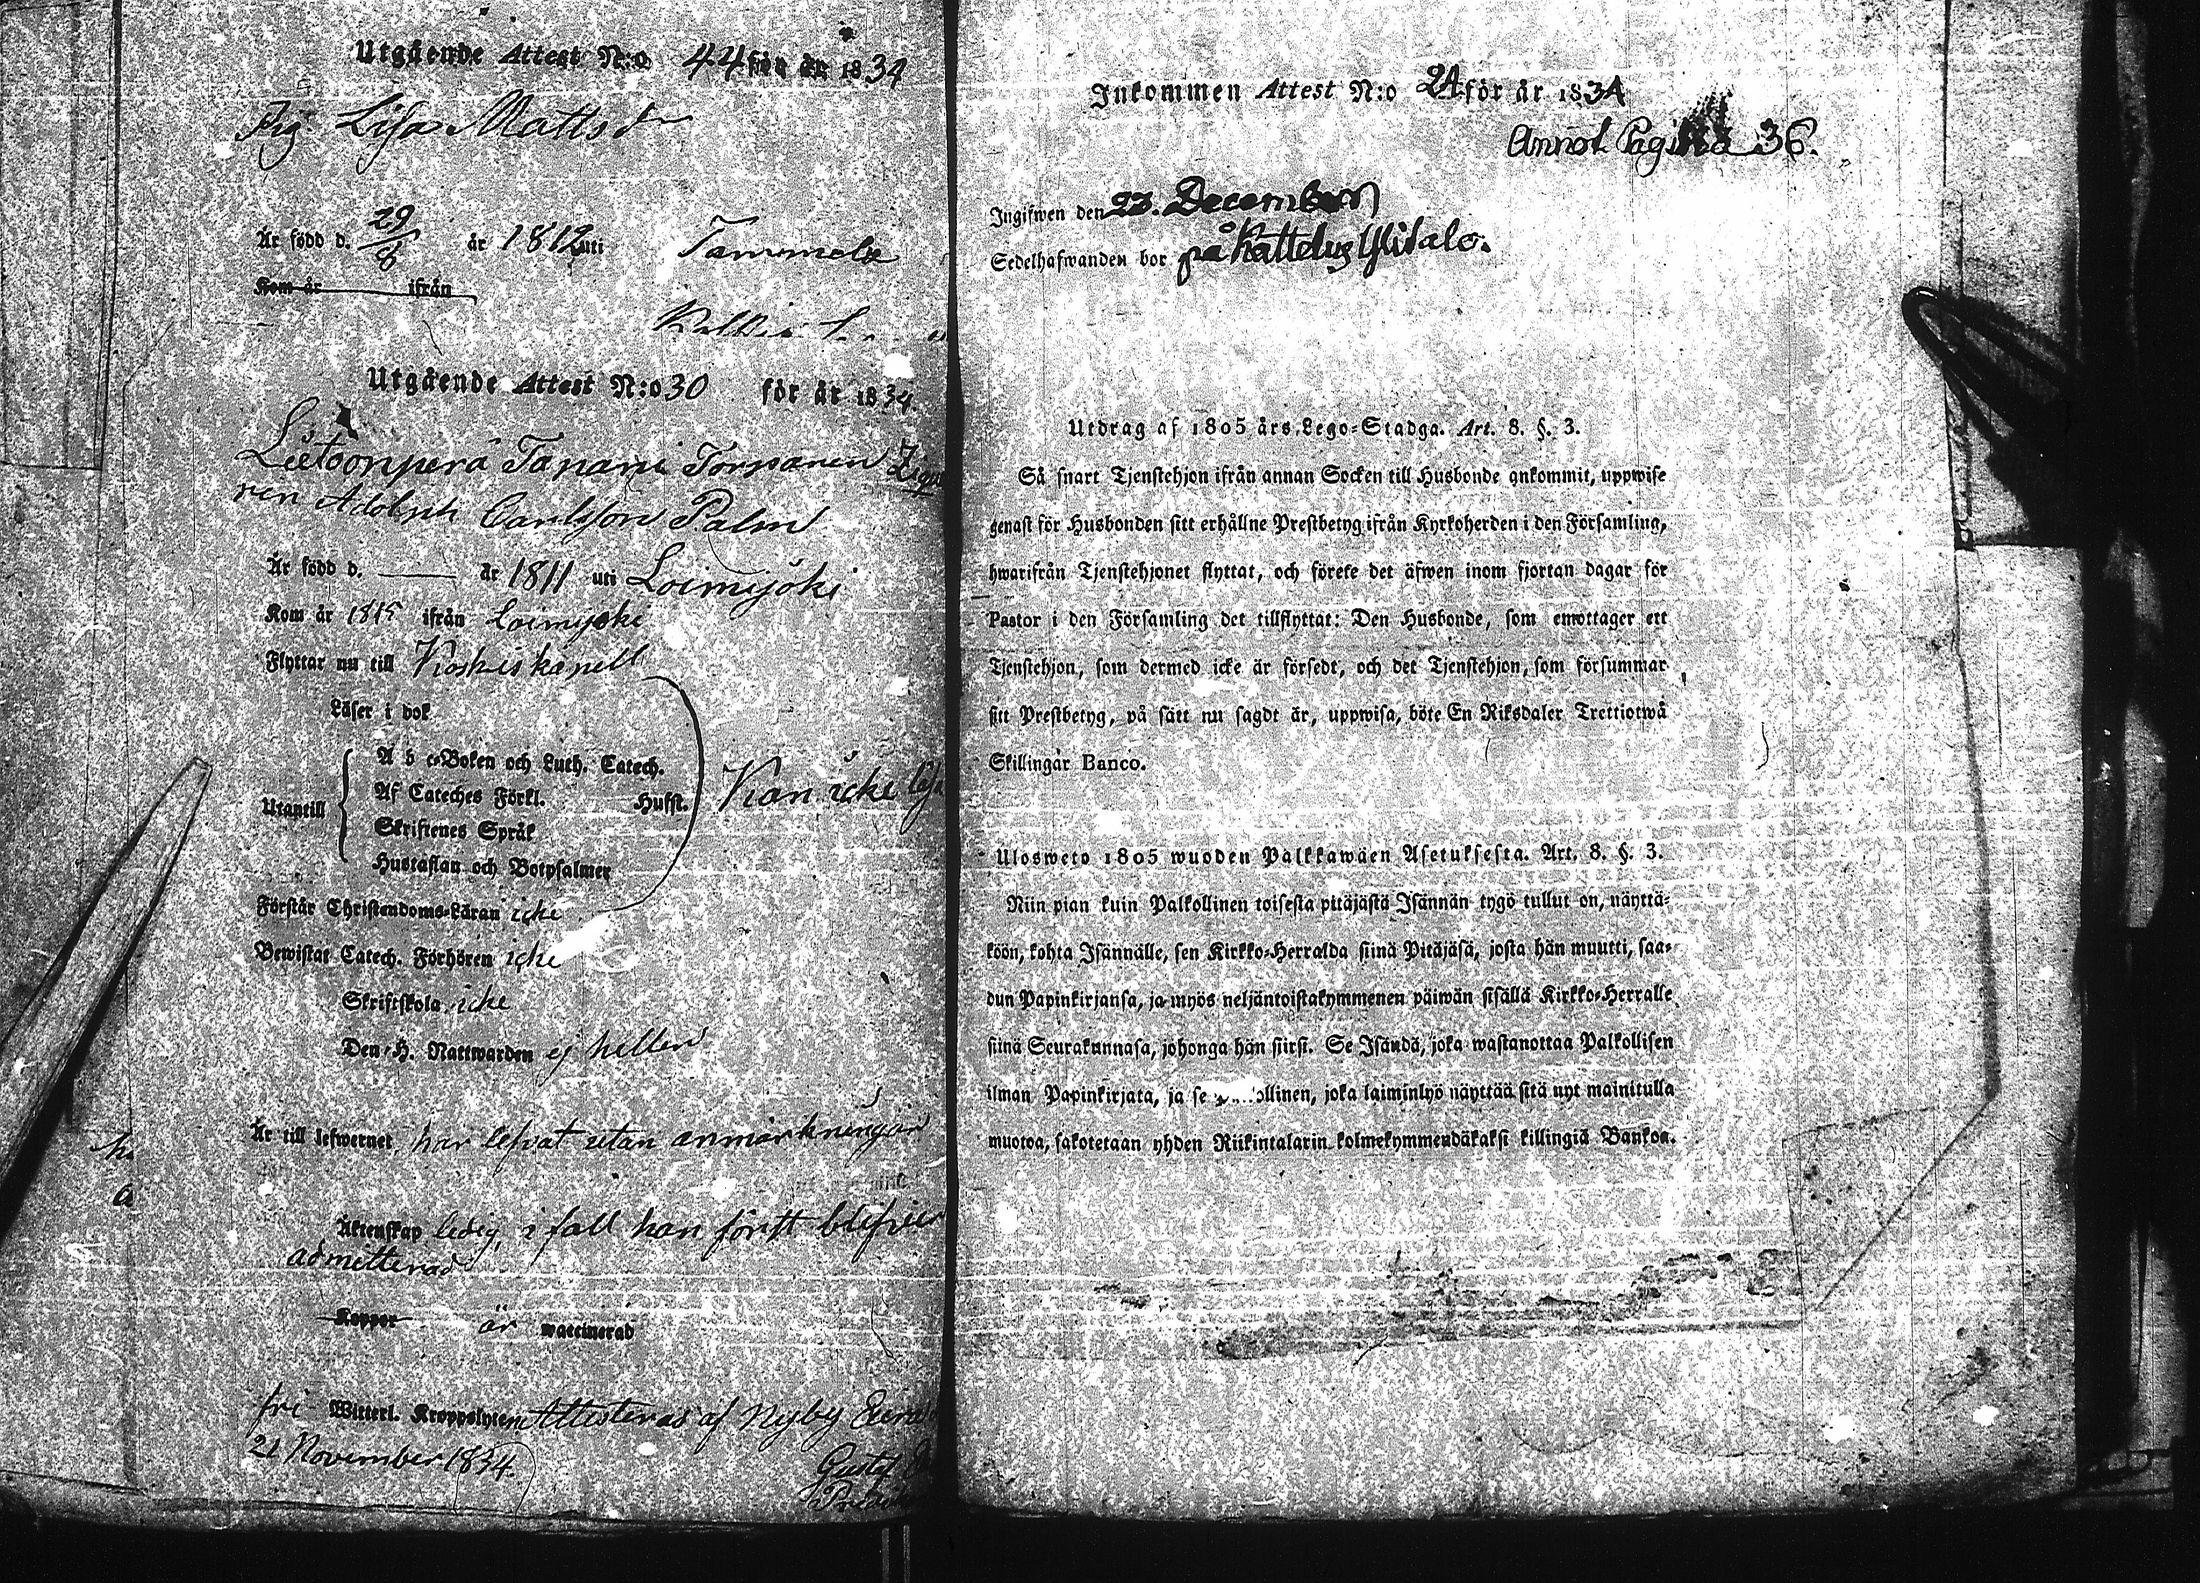 Utgående Attest N:o 44 för år 1834
Pig. Lisa Mattsdr
Är född d. 29/8 år 1812 uti Tammela
Kom år ifrån
Utgående Attest N:o 30 för år 1834.
Liitoonperä Tanani Torparen
ren Adolph Carlsson Palm
Är född d. — år 1811 uti Loimijoki
Kom år 1815 ifrån Loimijoki
Flyttar nu till Koskis kapell
Läser i bok
Utantill
A b c-Boken och Luth. Catech.
Af Cateches Förkl. Hufst. Kan icke
Skriftenes Språk
Hustaflan och Botpsalmer
Förstår Christendoms-Läran icke
Bewistat Catech. Förhören icke
Skriftskola icke
Den H. Nattwarden ej heller
Är till lefwernet har lefvat utan anmärkningar
Äktenskap ledig, i fall han förstt
admitterad
Koppor är waccinerad
fri Witterl. Kroppslyten Attesteras af Nyby
21 November 1834.
Gustaf
Inkommen Attest N:o 24 för år 1834
Annot. Pagina 36.
Ingifwen den 23. December
Sedelhafwanden bor på Kattelus Ylitalo.
Utdrag af 1805 års Lego-Stadga. Art. 8. §. 3.
Så snart Tjenstehjon ifrån annan Socken till Husbonde ankommit, uppwise
genast för Husbonden sitt erhållne Prestbetyg ifrån Kyrkoherden i den Församling,
hwarifrån Tjenstehjonet flyttat, och förete det äfwen inom fjortan dagar för
Pastor i den Församling det tillflyttat: Den Husbonde, som emottager ett
Tjenstehjon, som dermed icke är försedt, och det Tjenstehjon, som försummar
sitt Prestbetyg, på sätt nu sagdt är, uppwisa, böte En Riksdaler Trettiotwå
Skillingar Banco.
Ulosweto 1805 wuoden Palkkawäen Asetuksesta. Art. 8. §. 3.
Niin pian kuin Palkollinen toisesta pitäjästä Isännän tygö tullut on, näyttä-
köön, kohta Isännälle, sen Kirkko-Herralda siinä Pitäjäsä, josta hän muutti, saa-
dun Papinkirjansa, ja myös neljäntoistakymmenen päiwän sisällä Kirkko-Herralle
siinä Seurakunnasa, johonga hän siirsi. Se Isändä, joka wastanottaa Palkollisen
ilman Papinkirjata, ja se ollinen, joka laiminlyö näyttää sitä nyt mainitulla
muotoa, sakotetaan yhden Riikintalarin kolmekymmendäkaksi killingiä Bankoa.